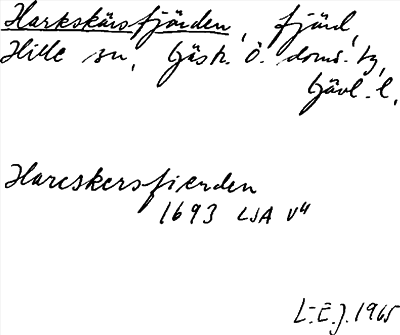 Harkskärsfjärden, fjärd,
Hille sn, Gästr. Ö. doms. tg,
Gävl. l.
Harcskersfierden
1693 LSA V4
L-E.J. 1965